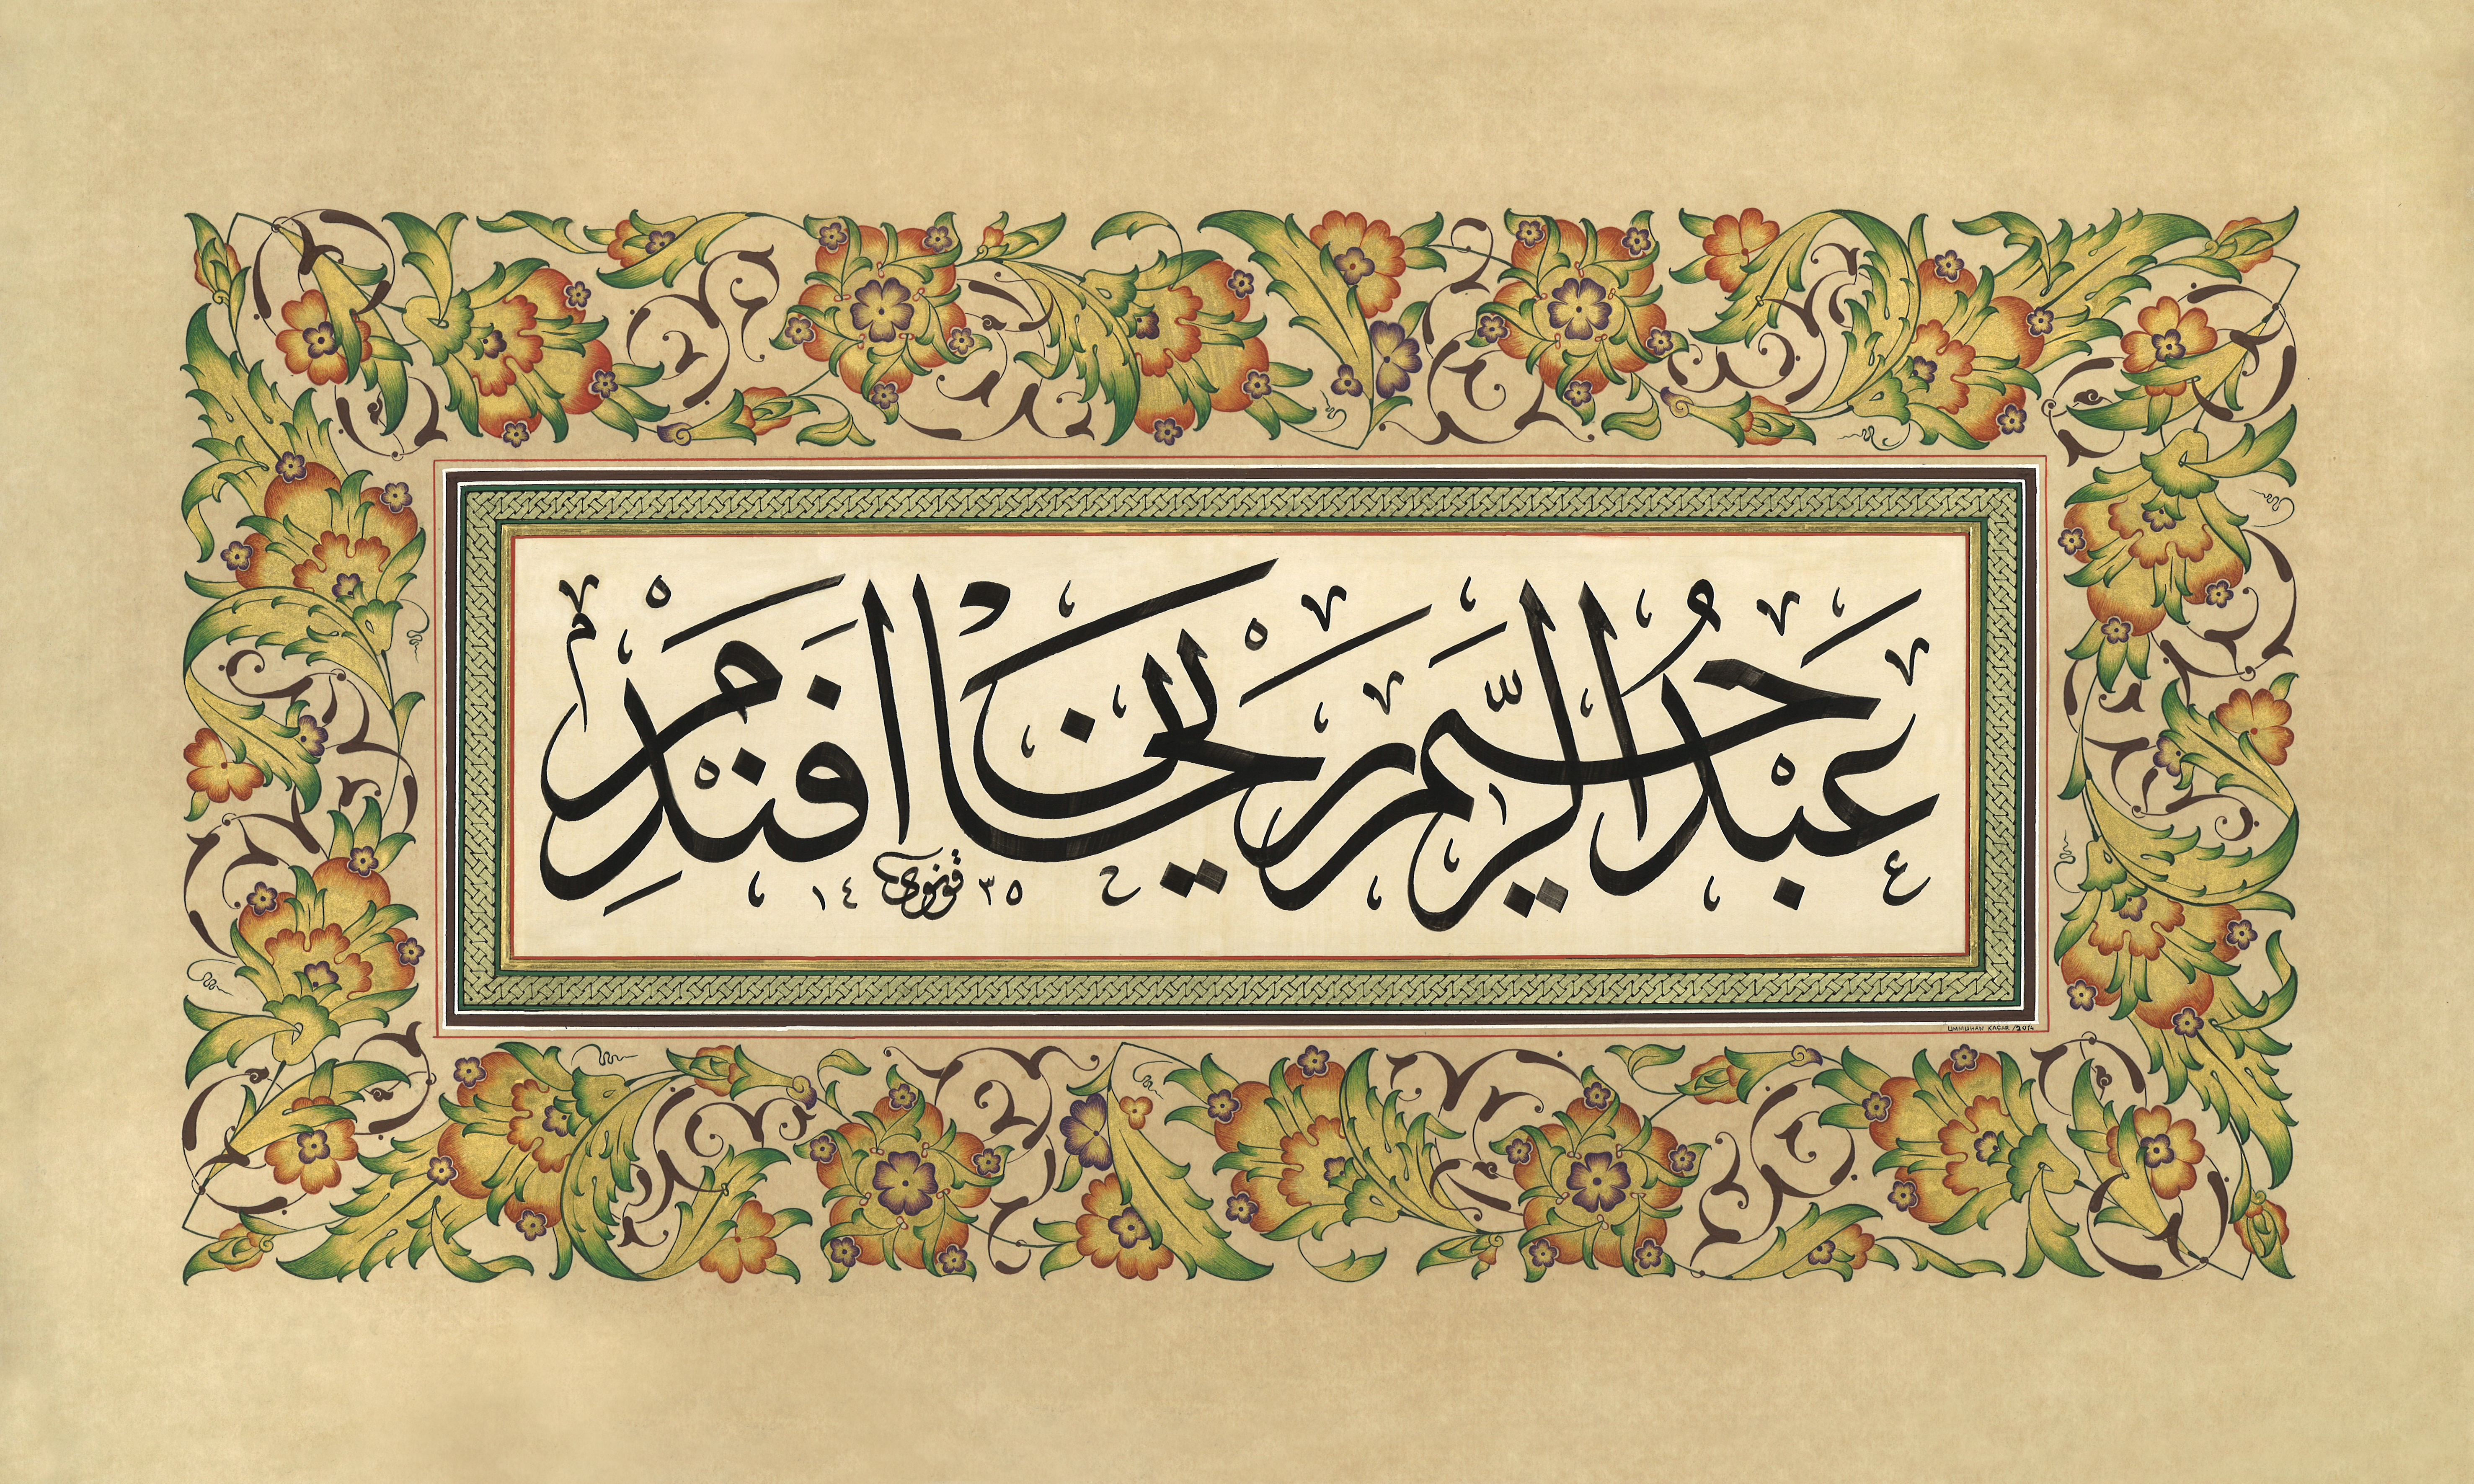 عبد الرحيم ريحان افندم
٣٥ قونوى ١٤